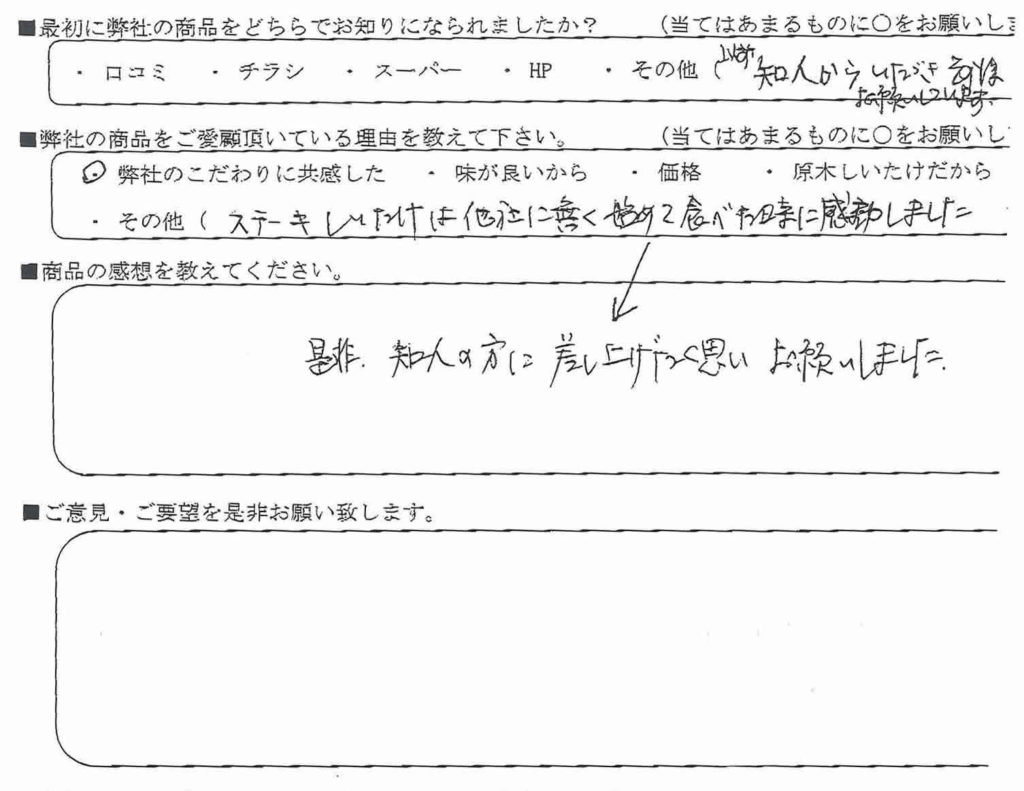 ■最初に弊社の商品をどちらでお知りになられましたか？ （当てはあまるものに〇をお願いし
・ 口コミ ・ チラシ ・ スーパー ・ HP ・ その他（以前 知人からいただき
お願いしています。
■弊社の商品をご愛顧頂いている理由を教えて下さい。 （当てはあまるものに〇をお願いし
・ 弊社のこだわりに共感した ・ 味が良いから ・ 価格 ・ 原木しいたけだから
・ その他（ ステーキしいたけは他社に無く始めて食べた時に感動しました
■商品の感想を教えてください。
是非、知人の方に差し上げたく思いお願いしました。
■ご意見・ご要望を是非お願い致します。